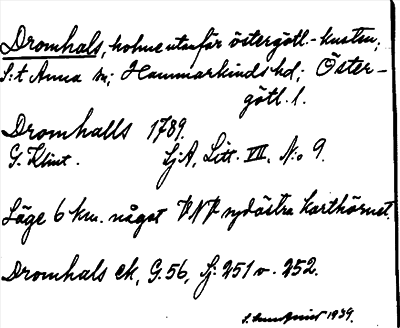 Dromhals, holme utanför östergötl.-kusten;
S:t Anna sn; Hammarkinds hd; Öster-
götl. l.
Dromhalls 1789.
G. Klint. SjA, Litt. VII, N:o 9.
Läge 6 km. något VNV sydöstra karthörnet.
Dromhals ek, G. 56, Sj: 251 v. 252.
1939.